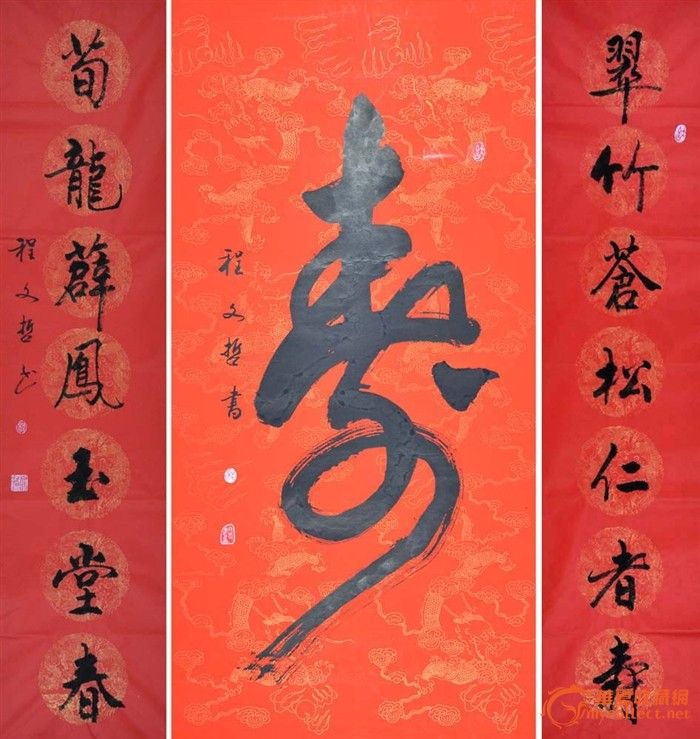 翠竹蒼松仁者壽
壽
程文哲書
荀龍薜鳳玉堂春
程文哲书